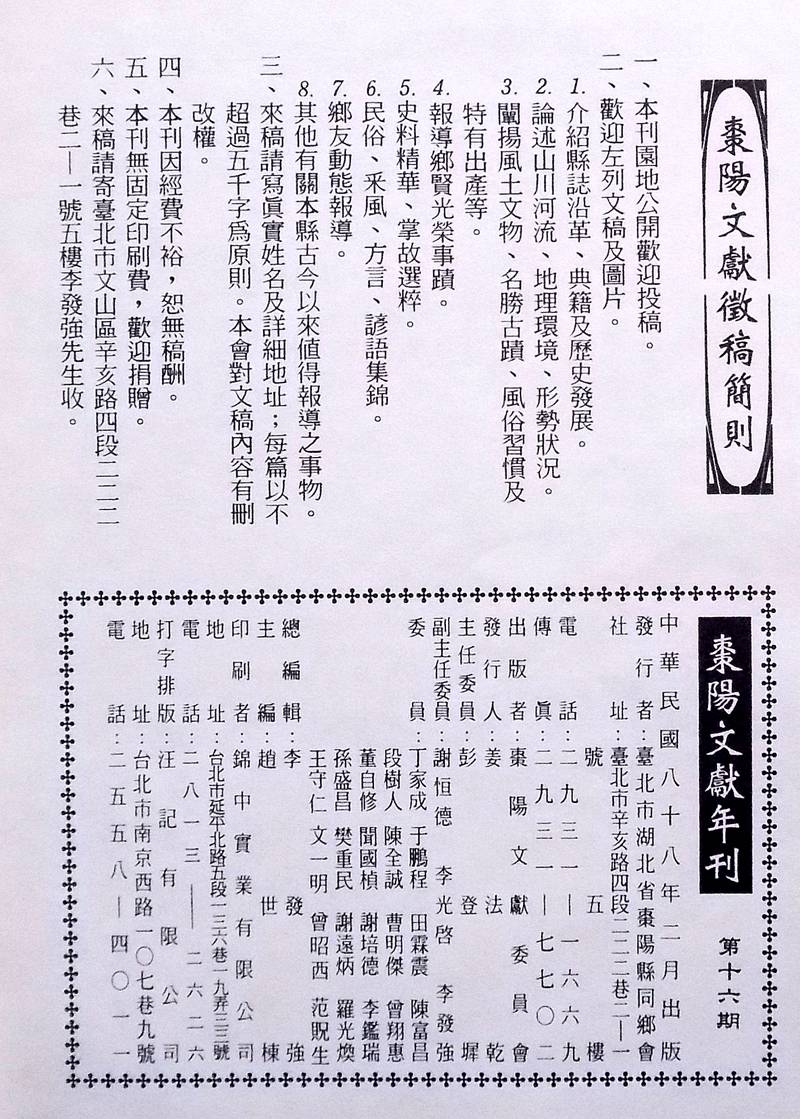 棗陽文獻徵稿簡則
一、本刊園地公開歡迎投稿。
二、歡迎左列文稿及圖片。
1.介紹縣誌沿革、典籍及歷史發展。
2.論述山川河流、地理環境、形勢狀況。
3.闡揚風土文物、名勝古蹟、風俗習慣及
特有出產等。
4.報導鄉賢光榮事蹟。
5.史料精華、掌故選粹。
6.民俗、釆風、方言、諺語集錦。
7.鄉友動態報導。
8.其他有關本縣古今以來值得報導之事物。
三、來稿請寫眞實姓名及詳細地址；每篇以不
超過五千字爲原則。本會對文稿內容有刪
改權。
四、本刊因經費不裕，恕無稿酬。
五、本刊無固定印刷費，歡迎捐贈。
六、來稿請寄臺北市文山區辛亥路四段二二二
巷二—一號五樓李發強先生收。
棗陽文獻年刊
第十六期
中華民國八十八年二月出版
發行者：臺北市湖北省棗陽縣同鄉會
社址：臺北市辛亥路四段二二二巷二—一
號五樓
電話：二九三一—一六六九
傳眞：二九三一—七七〇二
出版者：棗陽文獻委員會
發行人：姜法乾
主任委員：彭登墀
副主任委員：謝恒德 李光啓 李發強
委員：丁家成 于鵬程 田霖震 陳富昌
段樹人 陳全誠 曹明傑 曾翔惠
董自修 聞國楨 謝培德 李鑑瑞
孫盛昌 樊重民 謝遠炳 羅光煥
王守仁 文一明 曾昭西 范貺生
總編輯：李發強
主編：趙世棟
印刷者：錦中實業有限公司
地址：台北市延平北路五段一三六巷一九弄三三號
電話：二八一三—二六二六
打字排版：汪記有限公司
地址：台北市南京西路一〇七巷九號
電話：二五五八—四〇一一